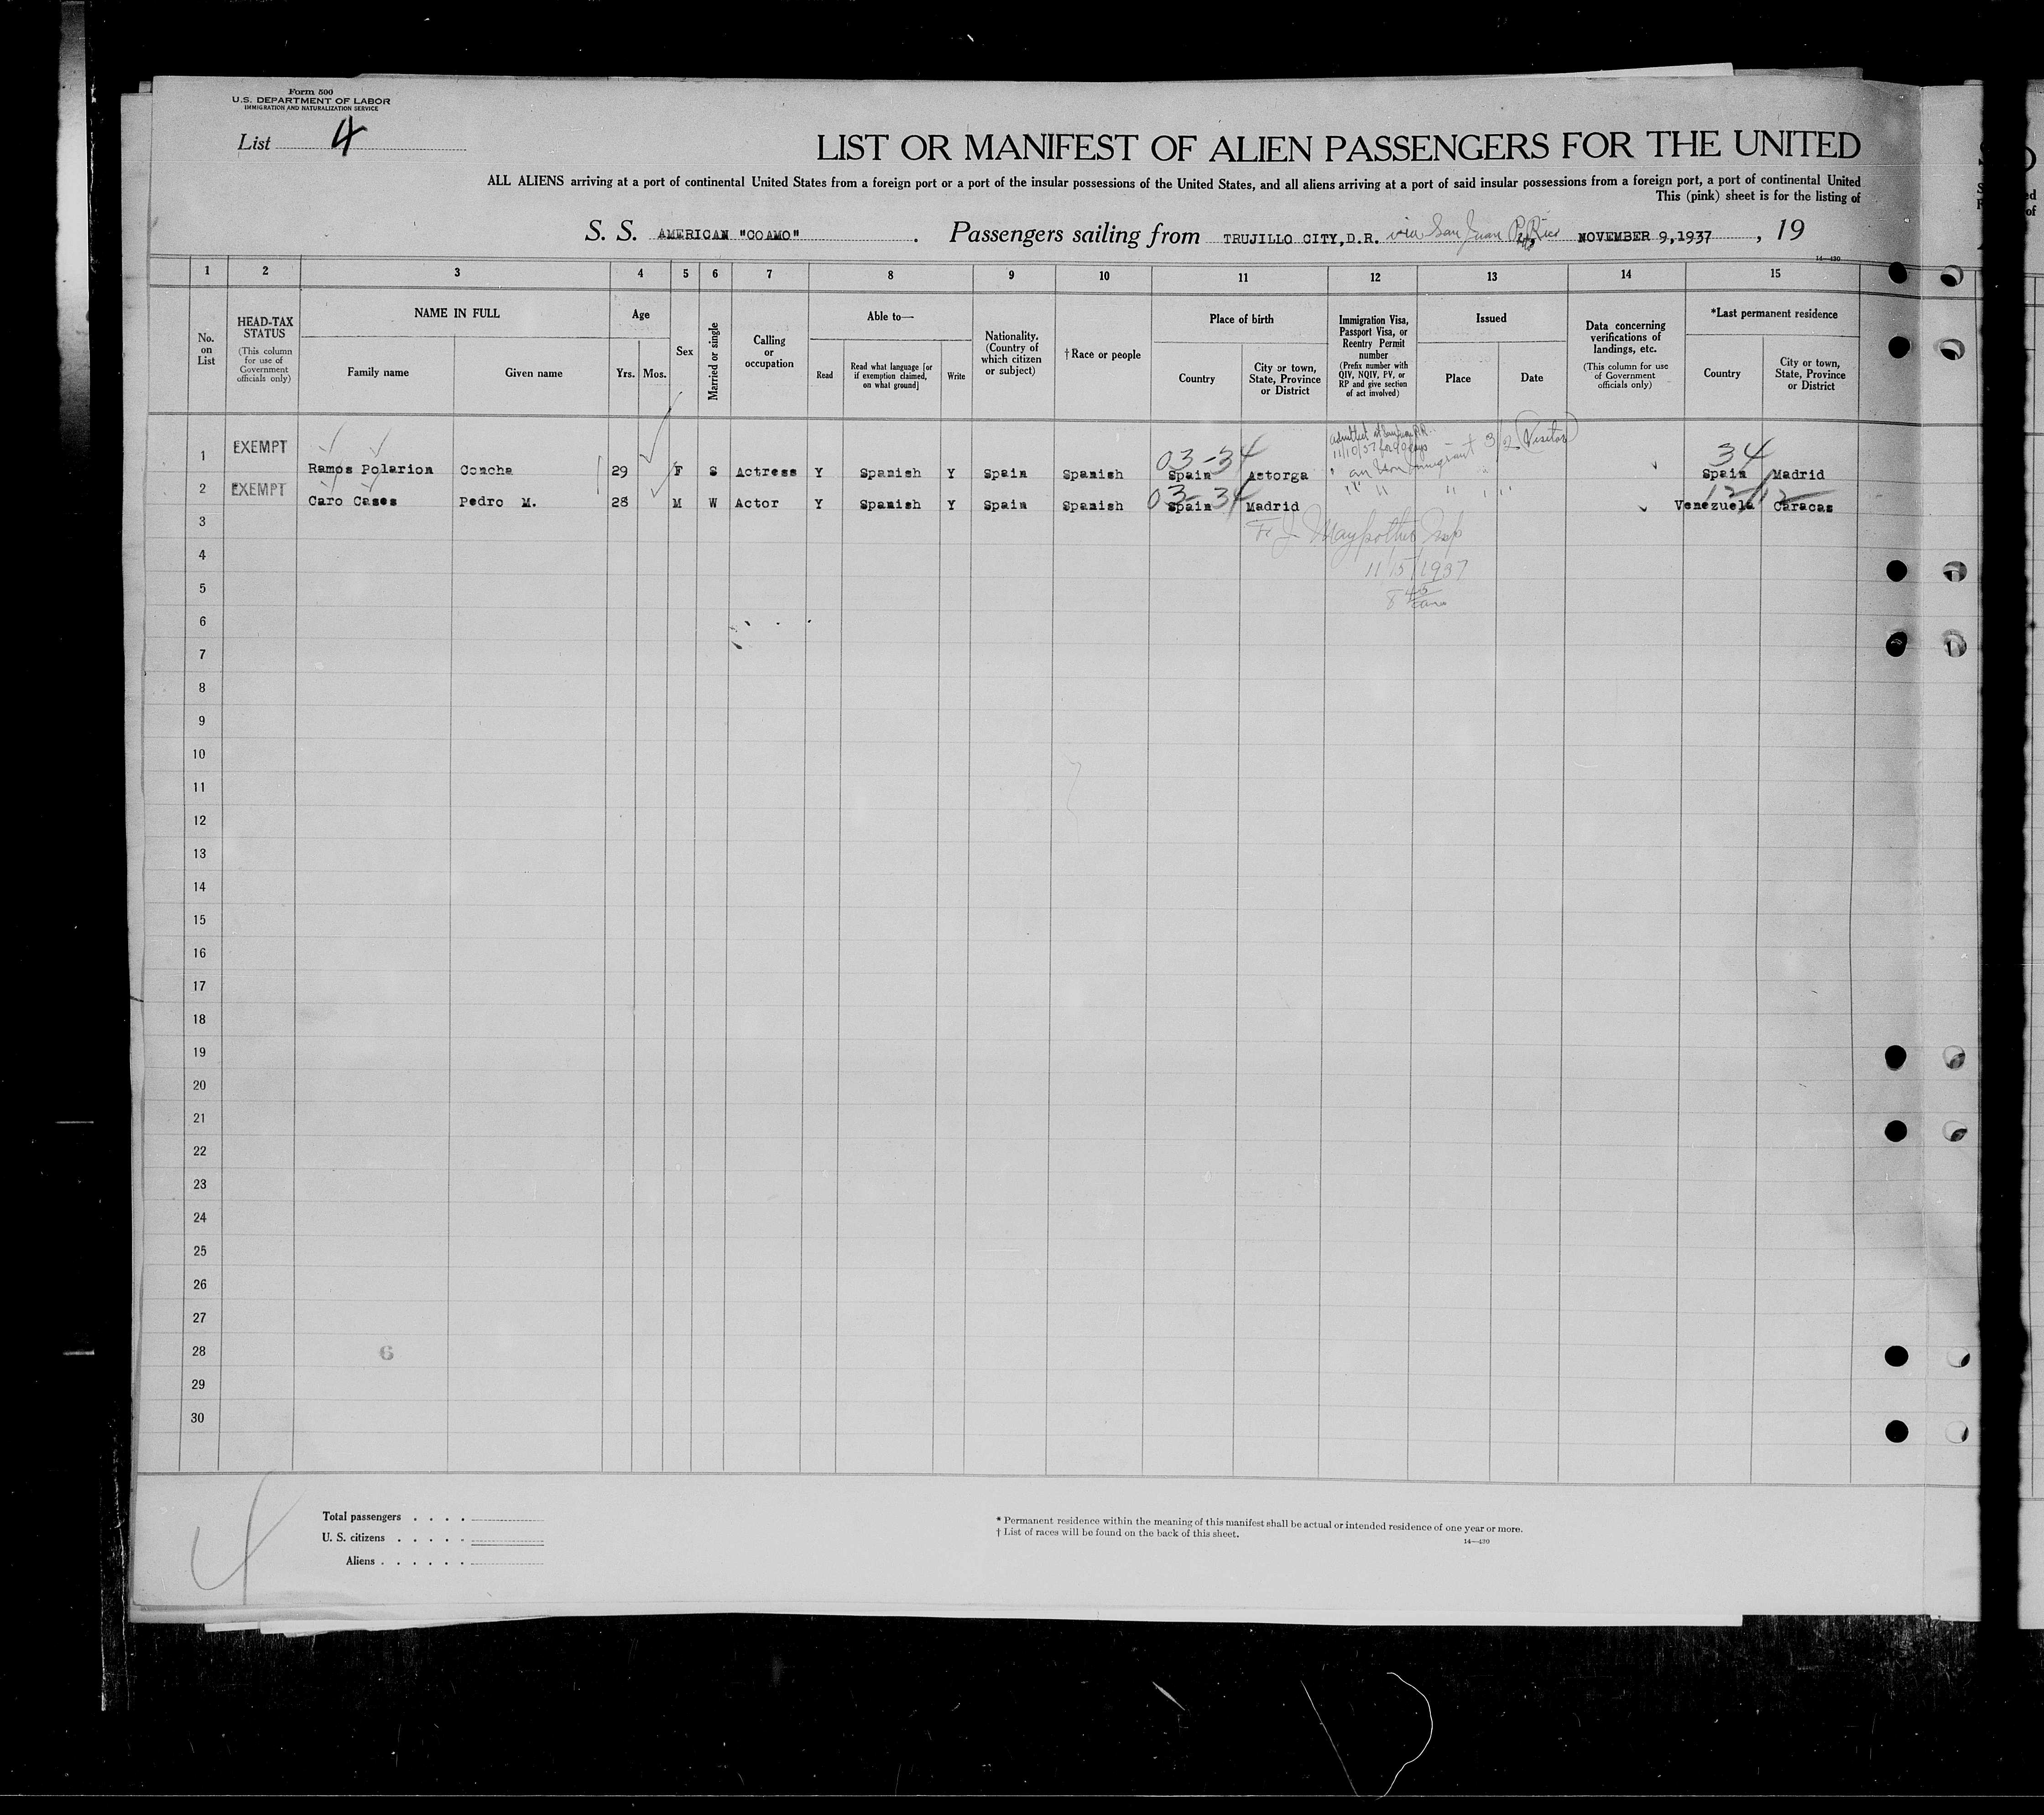 Form 500
U.S. DEPARTMENT OF LABOR
IMMIGRATION AND NATURALIZATION SERVICE
List 4
LIST OR MANIFEST OF ALIEN PASSENGERS FOR THE UNITED
ALL ALIENS arriving at a port of continental United States from a foreign port or a port of the insular possessions of the United States, and all aliens arriving at a port of said insular possessions from a foreign port, a port of continental United
This (pink) sheet is for the listing of
S. S. AMERICAN "COAMO" . Passengers sailing from TRUJILLO CITY, D.R. via San Juan P. Rico NOVEMBER 9, 1937 , 19
14—430
1 2 3 4 5 6 7 8 9 10 11 12 13 14 15
No. on List
HEAD-TAX STATUS
(This column for use of Government officials only)
NAME IN FULL
Family name
Given name
Age
Yrs.
Mos.
Sex
Married or single
Calling or occupation
Able to—
Read
Read what language [or if exemption claimed, on what ground]
Write
Nationality. (Country of which citizen or subject)
† Race or people
Place of birth
Country
City or town, State, Province or District
Immigration Visa, Passport Visa, or Reentry Permit number
(Prefix number with QIV, NQIV, PV, or RP and give section of act involved)
Issued
Place
Date
Data concerning verifications of landings, etc.
(This column for use of Government officials only)
*Last permanent residence
Country
City or town, State, Province or District
admitted at San Juan P.R.
11/10/37 for 90 days
an Non immigrant 3/2 Visitor
03-34
34
1 EXEMPT Ramos Polarion Concha 29 F S Actress Y Spanish Y Spain Spanish Spain Astorga Spain Madrid
" " " " "
03-34
12/12
2 EXEMPT Caro Cases Pedro M. 28 M W Actor Y Spanish Y Spain Spanish Spain Madrid Venezuela Caracas
3
Insp
4
11/15/1937
5
8 45 am
6
7
8
9
10
11
12
13
14
15
16
17
18
19
20
21
22
23
24
25
26
27
28 6
29
30
4
Total passengers . . . .
U. S. citizens . . . . .
Aliens . . . . . .
* Permanent residence within the meaning of this manifest shall be actual or intended residence of one year or more.
† List of races will be found on the back of this sheet.
14—430